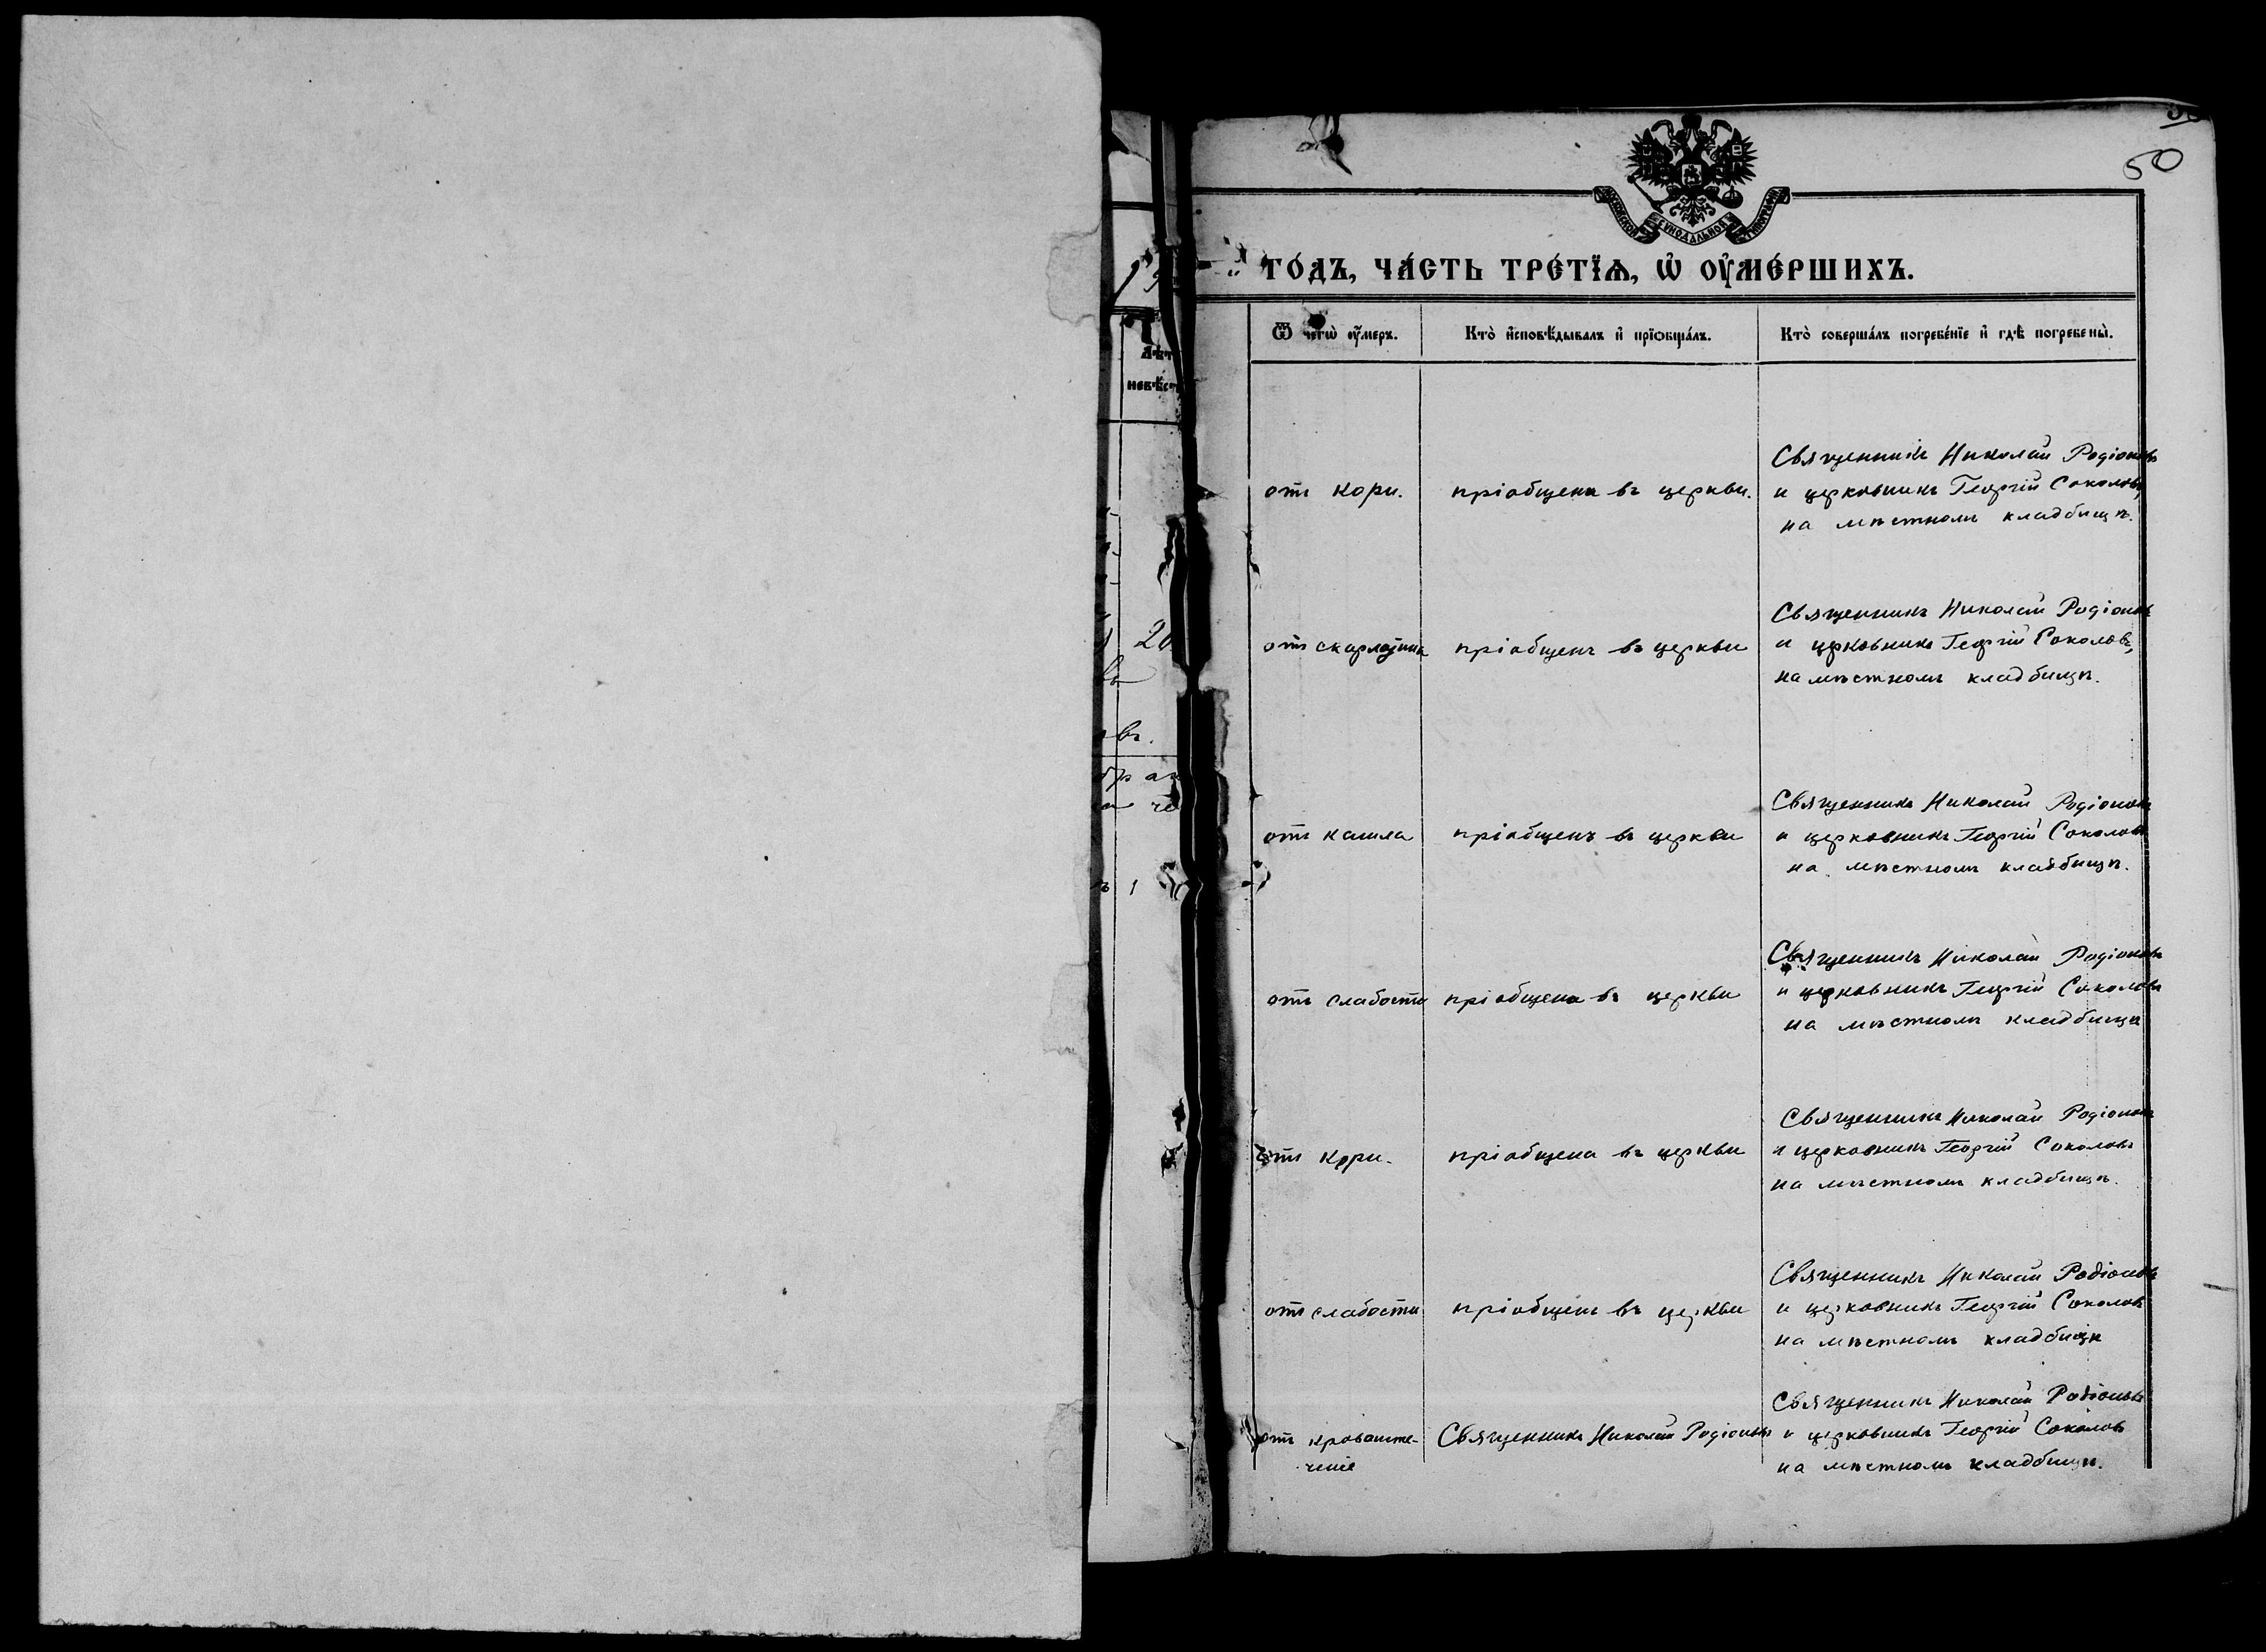 50
МОСКОВСКОЙ СѴНОДАЛЬНОЙ ТИПОГРАФІИ
го́дъ, ча́сть тре́тїѧ, ѡ҆ ᲂу҆ме́ршихъ.
Ѿ чегѡ̀ ᲂу҆́меръ.
Кто̀ и҆сповѣ́дывалъ и҆ прїѡбща́лъ.
Кто̀ соверша́лъ погребе́нїе и҆ гдѣ̀ погребены̀.
отъ кори.
пріобщена въ церкви.
Священникъ Николай Родіоновъ
и церковникъ Георгій Соколовъ,
на мѣстномъ кладбищѣ.
отъ скарлатина
пріобщенъ въ церкви
Священникъ Николай Родіоновъ
и церковникъ Георгій Соколовъ,
на мѣстномъ кладбищѣ.
отъ кашла
пріобщенъ въ церкви
Священникъ Николай Родіоновъ
и церковникъ Георгій Соколовъ
на мѣстномъ кладбищѣ.
отъ слабости
пріобщена въ церкви
Священникъ Николай Родіоновъ
и церковникъ Георгій Соколовъ
на мѣстномъ кладбищѣ
отъ кори.
пріобщена въ церкви
Священникъ Николай Родіоновъ
и церковникъ Георгій Соколовъ
на мѣстномъ кладбищѣ.
отъ слабости
пріобщенъ въ церкви
Священникъ Николай Родіоновъ
и церковникъ Георгій Соколовъ
на мѣстномъ кладбищѣ
отъ кровоште-
ченіе
Священникъ Николай Родіоновъ
Священникъ Николай Родіоновъ
и церковникъ Георгій Соколов
на мѣстномъ кладбищѣ.